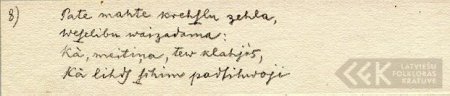 8) Pate mahte krehſlu zehla,
Weſelibu waizadama:
Kà, meitiņa, tew klahjàs,
Kà lihdſ ſchim padſihwoji
LATVIEŠU
FOLKLORAS
KRĀTUVE